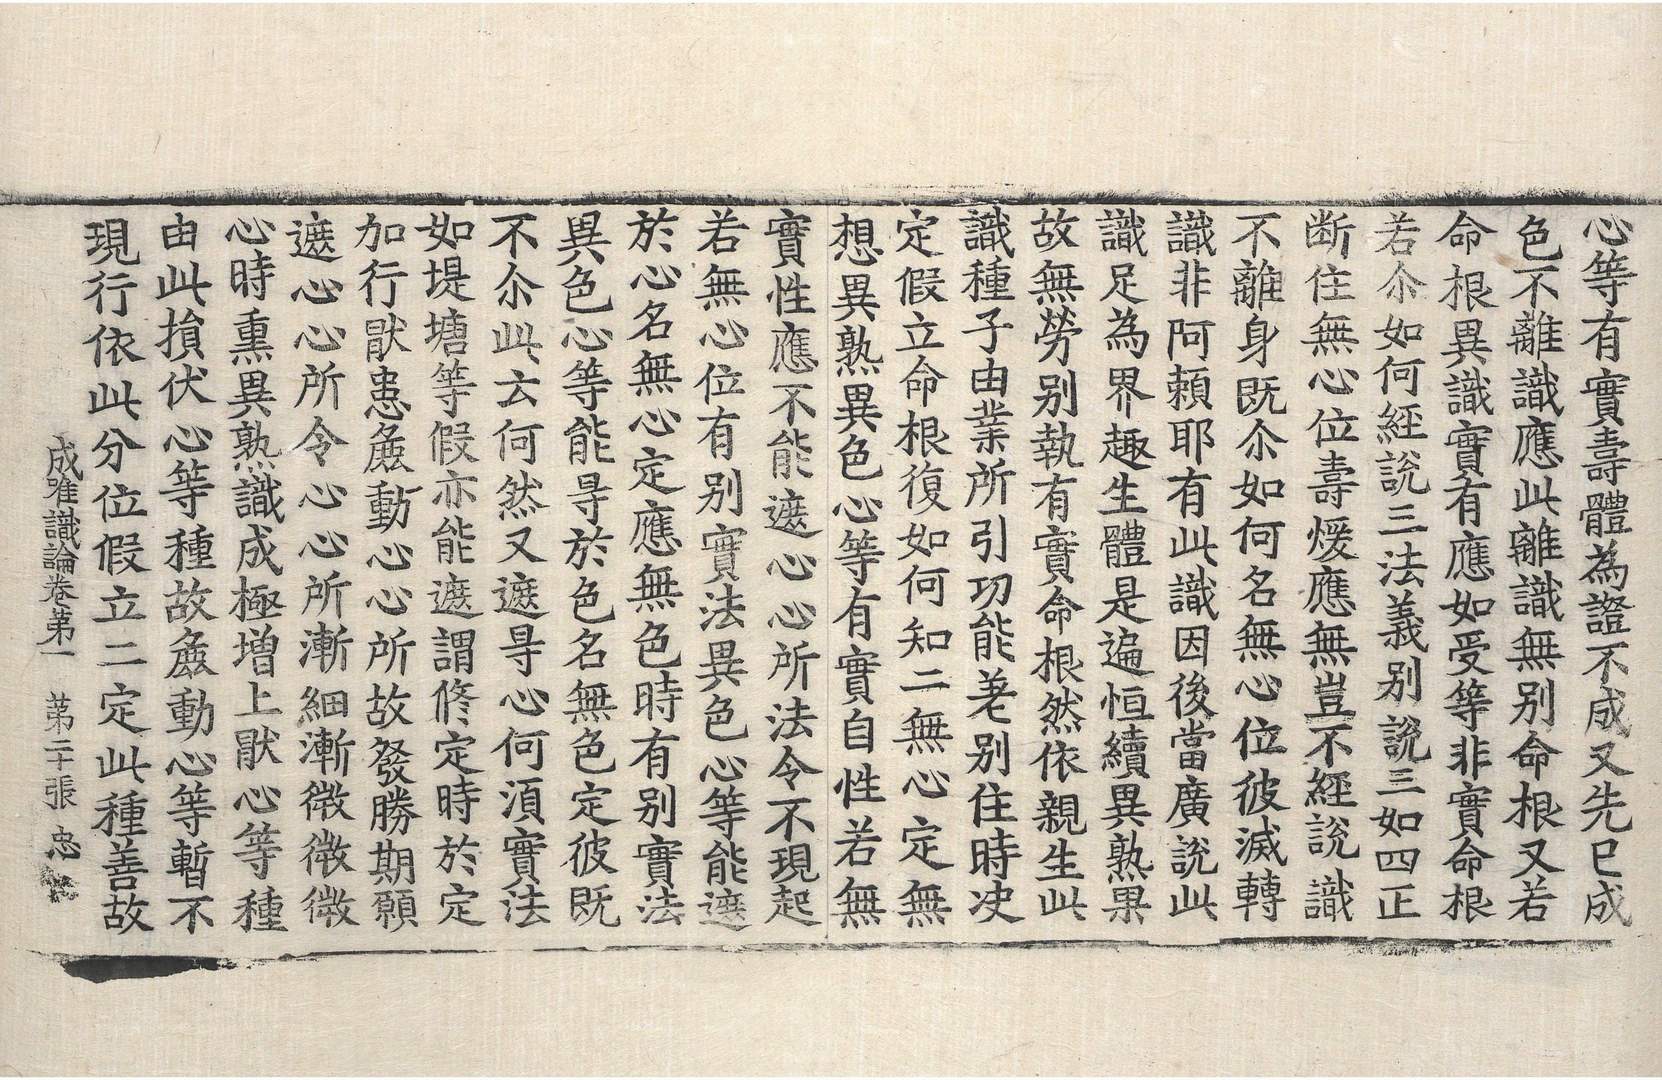 心等有實壽體為證不成又先已成
色不離識應此離識無别命根又若
命根異識實有應如受等非實命根
若尒如何經說三法義别說三如四正
断住無心位壽煖應無豈不經說識
不離身既尒如何名無心位彼滅轉
識非阿頼耶有此識因後當廣說此
識足為界趣生體是遍恒續異熟果
故無勞别執有實命根然依親生此
識種子由業所引功能差别住時决
定假立命根復如何知二無心定無
想異熟異色心等有實自性若無
實性應不能遮心心所法令不現起
若無心位有别實法異色心等能遮
於心名無心定應無色時有别實法
異色心等能㝵於色名無色定彼既
不尒此云何然又遮㝵心何湏實法
如堤塘等假亦能遮謂修定時於定
加行猒患麁動心心所故發勝期願
遮心心所令心心所漸細漸微微微
心時熏異熟識成極增上猒心等種
由此損伏心等種故麁動心等暫不
現行依此分位假立二定此種善故
成唯識論卷苐一 苐二十張 忠